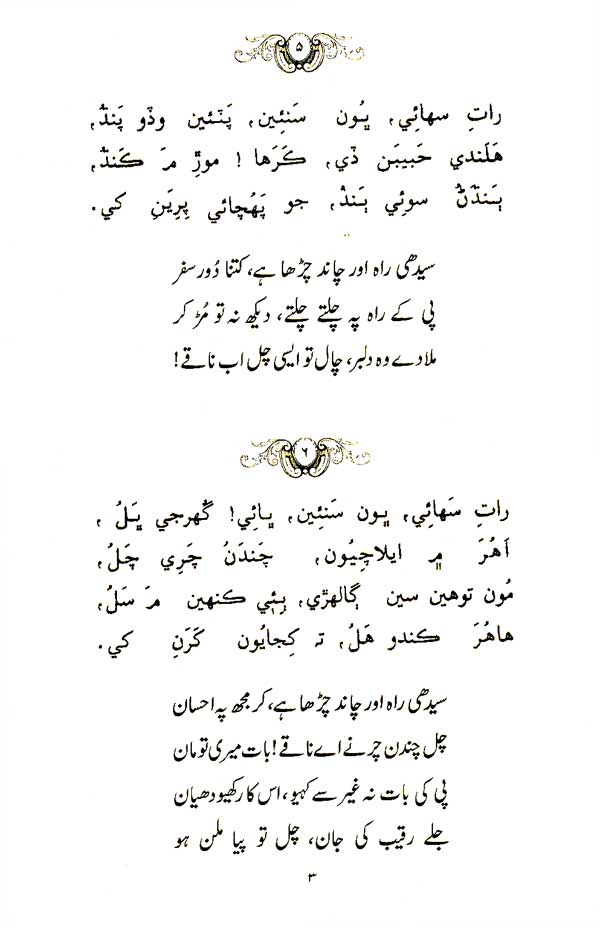 ۵
راتِ سهائي، ڀُون سَنئِين، پَٽَئين وڏو پَنڌُ،
هَلَندي حَبيبَن ڏي، ڪَرَها ! موڙِ مَ ڪَنڌُ،
ٻَنڌَڻُ سوئِي ٻَنڌُ، جو پَهُچائي پِرِيَنِ کي.
سیدھی راہ اور چاند چڑھا ہے، کتنا دُور سفر
پی کے راہ پہ چلتے چلتے، دیکھ نہ تو مُڑ کر
ملا دے وہ دلبر، چال تو ایسی چل اب ناقے!
۶
راتِ سَهائِي، ڀُون سَنئِين، ڀائِي! گُهرجي ڀَلُ،
اَهُرَ ۾ ايلاچِيُون، چَندَنُ چَري چَلُ،
مُون توهين سين ڳالهڙي، ٻِئِي ڪنهين مَ سَلُ،
هاهُرَ ڪندو هَلُ، تہ ڪِجايُون ڪَرَنِ کي.
سیدھی راہ اور چاند چڑھا ہے، کر مجھ پہ احسان
چل چندن چرنے اے ناقے! بات میری تو مان
پی کی بات نہ غیر سے کہیو، اس کا رکھیو دھیان
جلے رقیب کی جان، چل تو پیا ملن ہو
۳